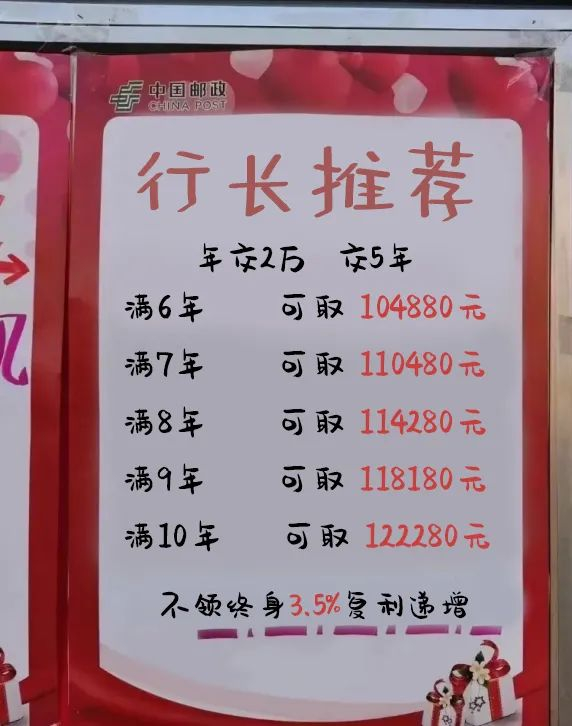 中国邮政
CHINA POST
行长推荐
年交2万 交5年
满6年 可取 104880元
满7年 可取 110480元
满8年 可取 114280元
满9年 可取 118180元
满10年 可取 122280元
不领终身3.5%复利递增